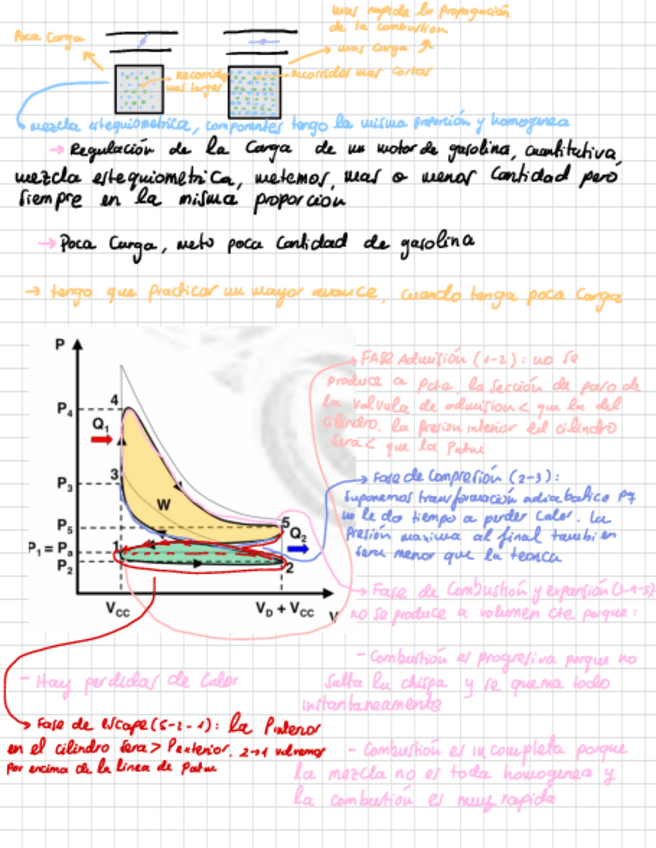 mas rapida la propagación
de la combustion
Poca Carga
mas Carga
recorrido
mas largos
recorridos mas cortos
mezcla estequiometrica, componentes tengo la misma proporción y homogenea
→ Regulación de la Carga de un motor de gasolina, cuantitativa,
mezcla estequiometrica, metemos, mas o menos cantidad pero
siempre en la misma proporcion
→ Poca Carga, meto poca cantidad de gasolina
→ tengo que practicar un mayor avance, cuando tenga poca Carga
P
4
P4
Q1
3
P3
W
P5
5
Q2
P1 = Pa
1
P2
2
VCC
VD + VCC
V
→ FASE Admisión (1-2): no se
produce a Pcte la sección de paso de
la valvula de admision < que la del
cilindro. la presion interior del cilindro
sera < que la Patm
→ Fase de Compresión (2-3):
suponemos transformación adiabatica Pq
no le do tiempo a perder Calor. La
Presión maxima al final tambien
sera menor que la teorica
→ Fase de Combustión y expansión (3-4-5)
no se produce a volumen cte porque:
- Combustión es progresiva porque no
salta la chispa y se quema todo
instantaneamente
- Hay perdidas de Calor
→ Fase de escape (5-2-1): la Pinterior
en el cilindro sera > Pexterior. 2→1 volvemos
por encima de la linea de Patm
- Combustión es incompleta porque
la mezcla no es toda homogenea y
la combustión es muy rapida